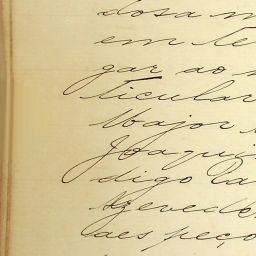 dosa m
em te
gar ao
ticular
Major
Joaqui
digo Da
Azevedo
aes peço